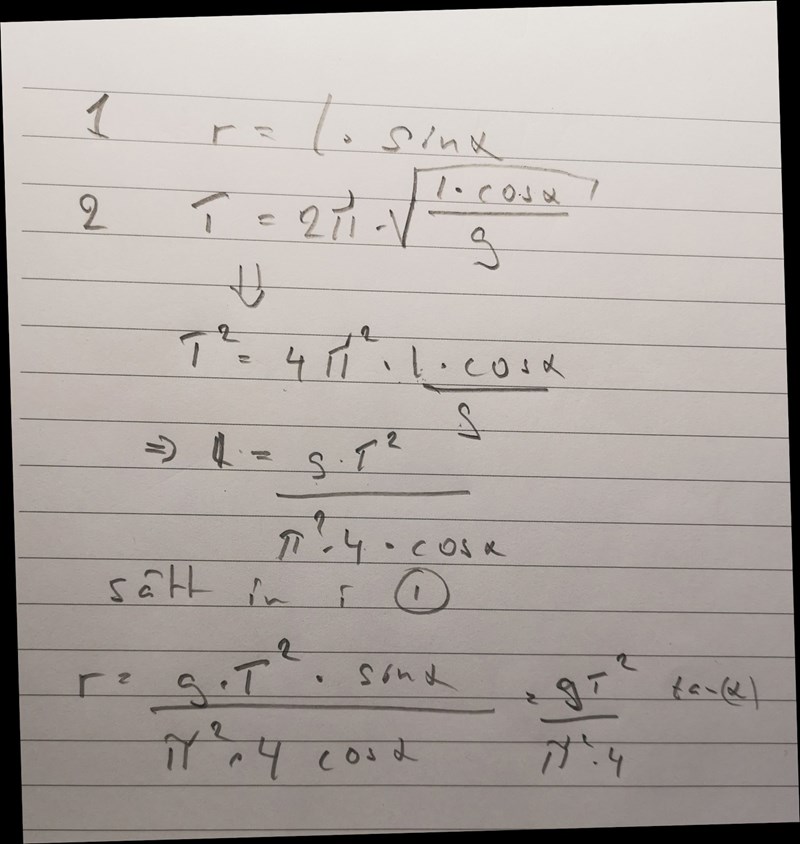 1 r = l · sinα
2 T = 2π · √(l · cosα / g)
⇓
T² = 4π² · l · cosα / g
⇒ l = g · T² / π² · 4 · cosα
sätt in i ①
r = g · T² · sinα / π² · 4 cosα = gT² / π² · 4 tan(α)